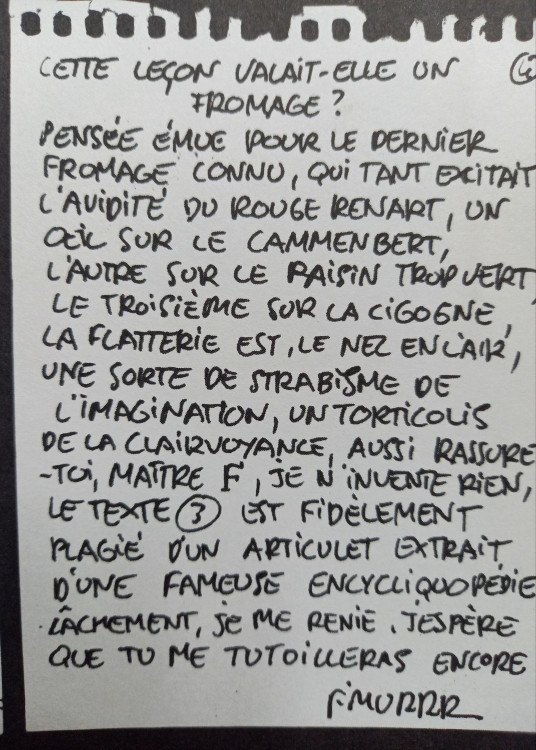 CETTE LEÇON VALAIT-ELLE UN ④
FROMAGE ?
PENSÉE ÉMUE POUR LE DERNIER
FROMAGE CONNU, QUI TANT EXCITAIT
L'AVIDITÉ DU ROUGE RENART, UN
OEIL SUR LE CAMMENBERT,
L'AUTRE SUR LE RAISIN TROP VERT,
LE TROISIÈME SUR LA CIGOGNE,
LA FLATTERIE EST, LE NEZ EN L'AIR,
UNE SORTE DE STRABISME DE
L'IMAGINATION, UN TORTICOLIS
DE LA CLAIRVOYANCE, AUSSI RASSURE
-TOI, MAÎTRE F, JE N'INVENTE RIEN,
LE TEXTE ③ EST FIDÈLEMENT
PLAGIÉ D'UN ARTICULET EXTRAIT
D'UNE FAMEUSE ENCYCLIQUOPÉDIE
LÂCHEMENT, JE ME RENIE. J'ESPÈRE
QUE TU ME TUTOILLERAS ENCORE
F'MURRR